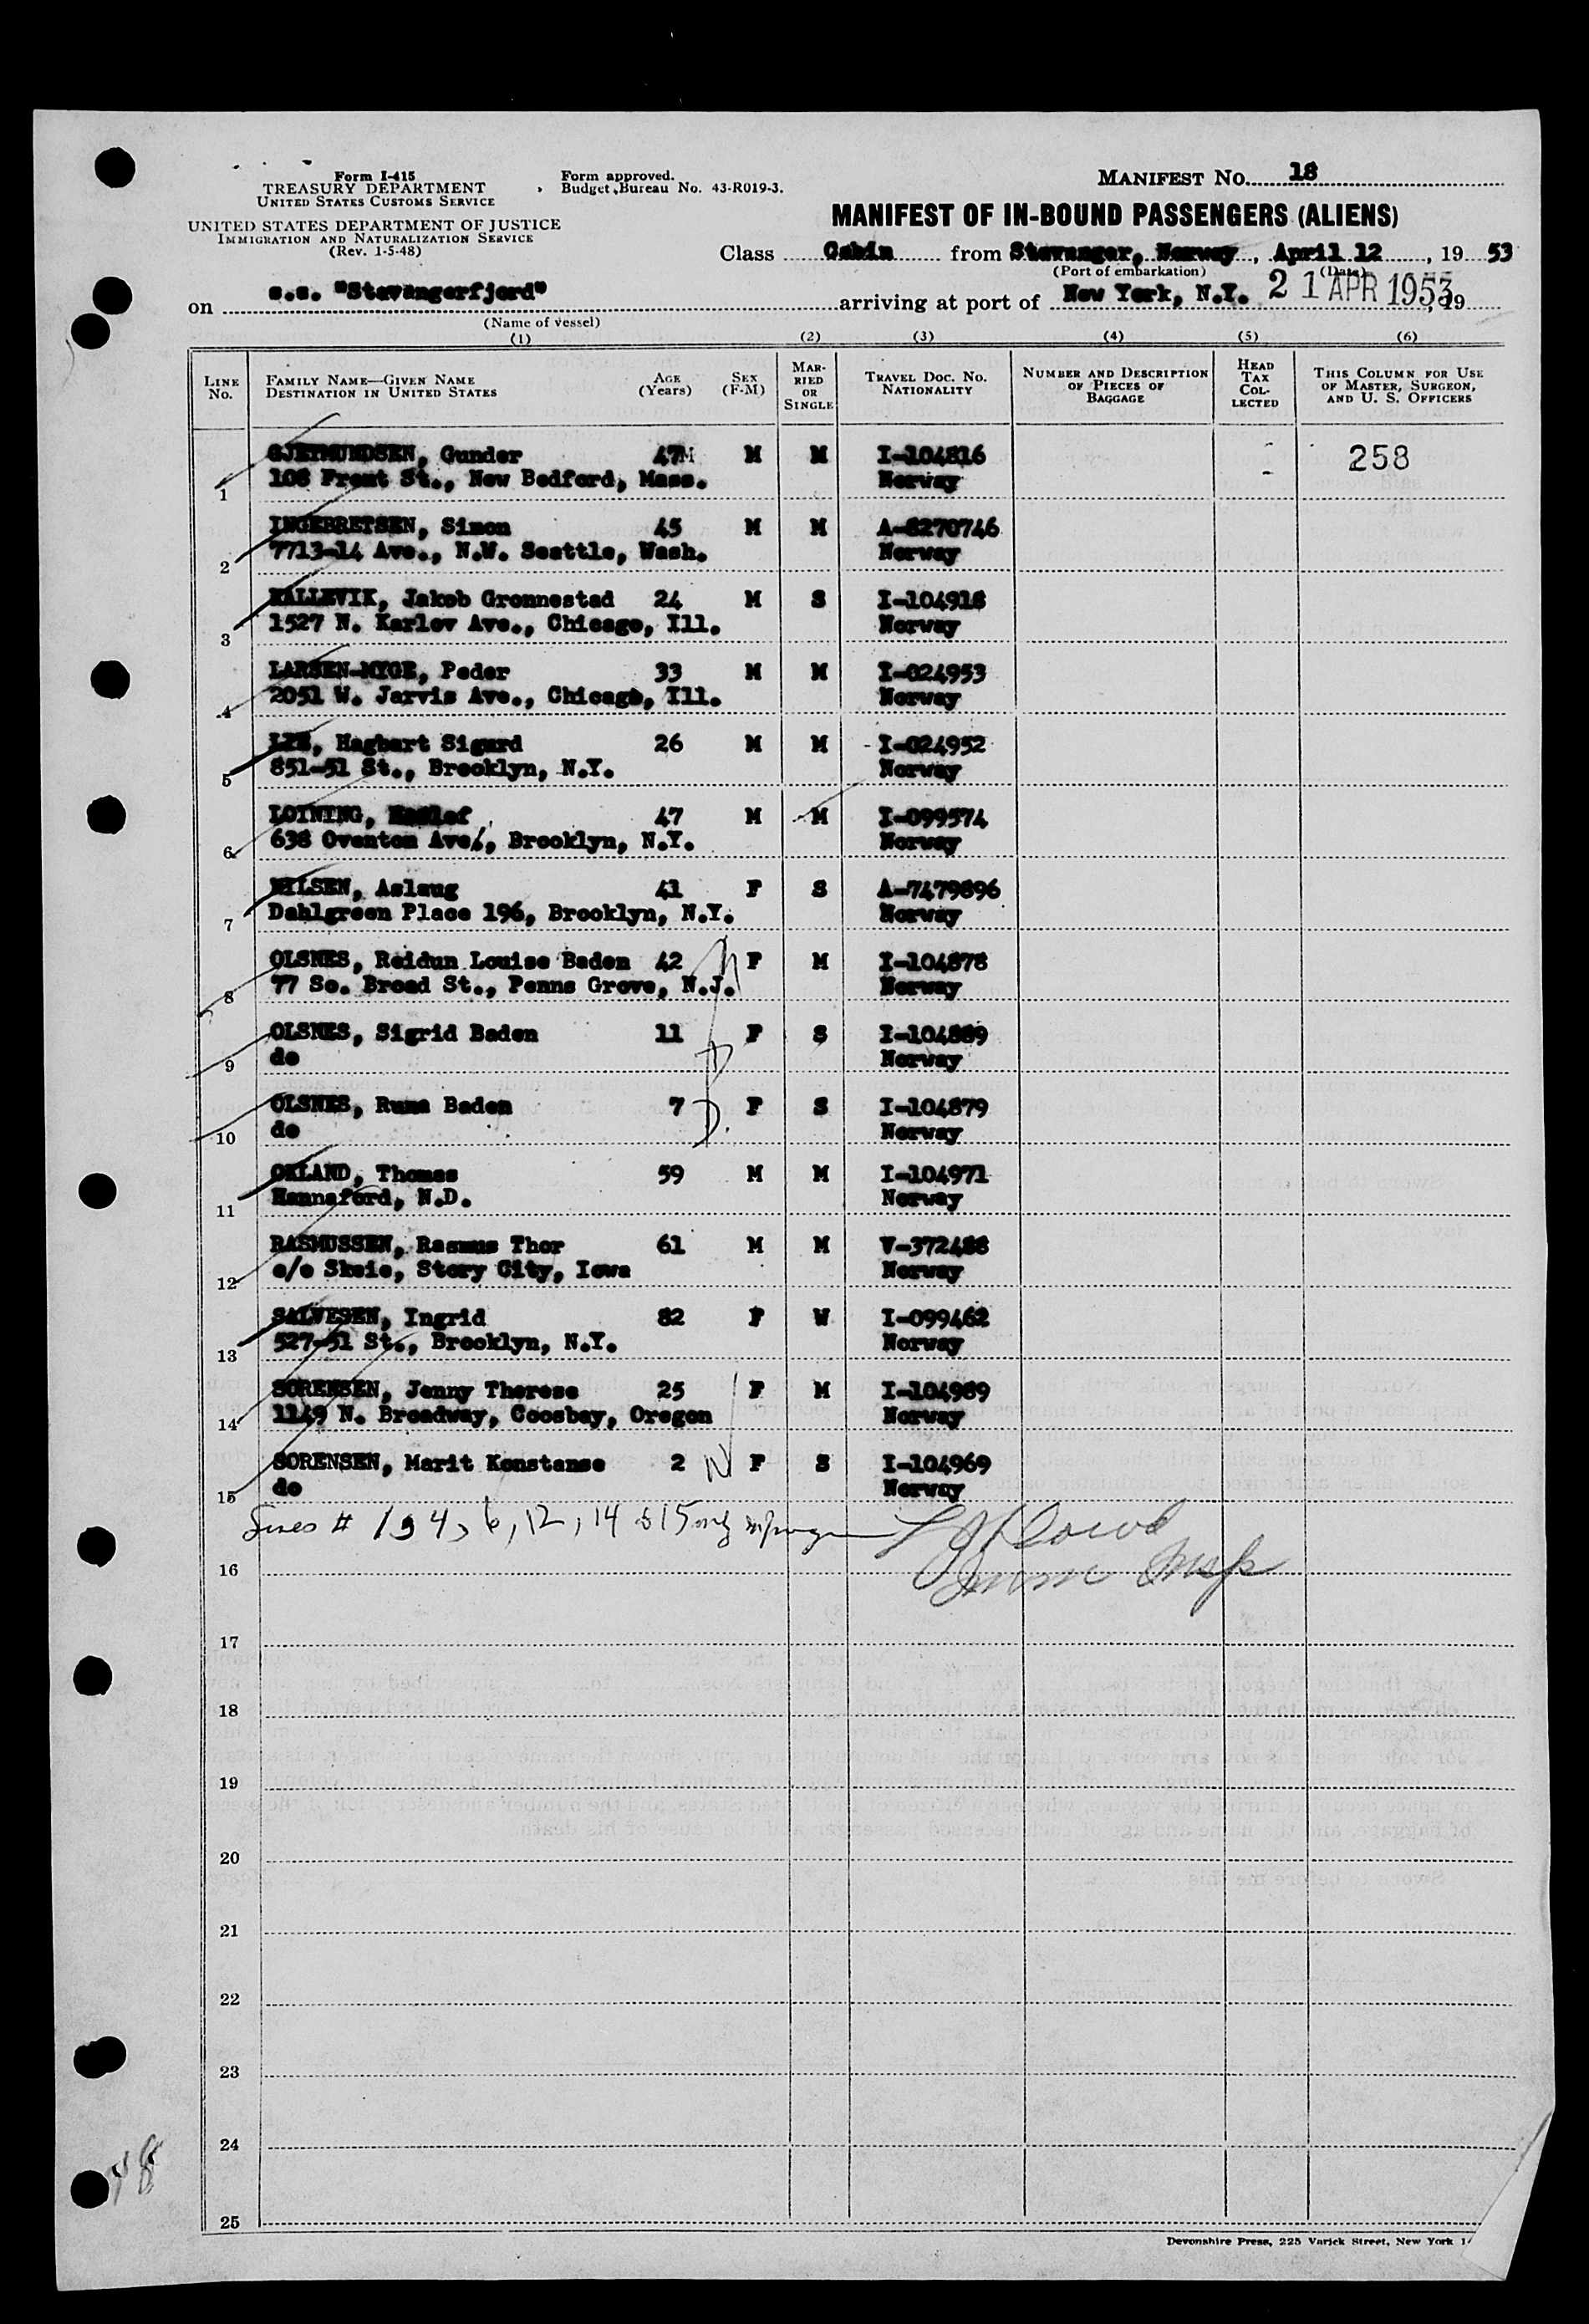 Form I-415
TREASURY DEPARTMENT
UNITED STATES CUSTOMS SERVICE
UNITED STATES DEPARTMENT OF JUSTICE
IMMIGRATION AND NATURALIZATION SERVICE
(Rev. 1-5-48)
Form approved.
Budget Bureau No. 43-R019-3.
MANIFEST NO. 18
MANIFEST OF IN-BOUND PASSENGERS (ALIENS)
Class Cabin from Stavanger, Norway, April 12, 19 53
(Port of embarkation) (Date)
on s.s. "Stavangerfjord" arriving at port of New York, N.Y. 21 APR 1953, 19
(Name of vessel)
(1) (2) (3) (4) (5) (6)
LINE No. FAMILY NAME—GIVEN NAME DESTINATION IN UNITED STATES AGE (Years) SEX (F-M) MARRIED OR SINGLE TRAVEL DOC. NO. NATIONALITY NUMBER AND DESCRIPTION OF PIECES OF BAGGAGE HEAD TAX COLLECTED THIS COLUMN FOR USE OF MASTER, SURGEON, AND U. S. OFFICERS
GJERMUNDSEN, Gunder 47 M M I-104816 258
1 108 Front St., New Bedford, Mass. Norway
INGEBRETSEN, Simon 45 M M A-8270746
2 7713-14 Ave., N.W. Seattle, Wash. Norway
KALLEVIK, Jakob Gronnestad 24 M S I-104918
3 1527 N. Karlov Ave., Chicago, Ill. Norway
LARSEN-MYGE, Peder 33 M M I-024953
4 2051 W. Jarvis Ave., Chicago, Ill. Norway
LIE, Hagbart Sigurd 26 M M I-024952
5 851-51 St., Brooklyn, N.Y. Norway
LOINING, 47 M M I-099574
6 638 Oventon Ave., Brooklyn, N.Y. Norway
NILSEN, Aslaug 41 F S A-7479896
7 Dahlgreen Place 196, Brooklyn, N.Y. Norway
OLSNES, Reidun Louise Baden 42 F M I-104878
8 77 So. Broad St., Penns Grove, N.J. Norway
OLSNES, Sigrid Baden 11 F S I-104889
9 do Norway
OLSNES, Runa Baden 7 F S I-104879
10 do Norway
OKLAND, Thomas 59 M M I-104971
11 Hannaford, N.D. Norway
RASMUSSEN, Rasmus Thor 61 M M V-372488
12 c/o Skeie, Story City, Iowa Norway
SALVESEN, Ingrid 82 F W I-099462
13 527-51 St., Brooklyn, N.Y. Norway
SORENSEN, Jenny Therese 25 F M I-104989
14 1149 N. Broadway, Coosbay, Oregon Norway
SORENSEN, Marit Konstanse 2 F S I-104969
15 do Norway
Lines # 1, 4, 6, 12, 14 & 15 only
Imm Insp
16
17
18
19
20
21
22
23
24
25
Devonshire Press, 225 Varick Street, New York